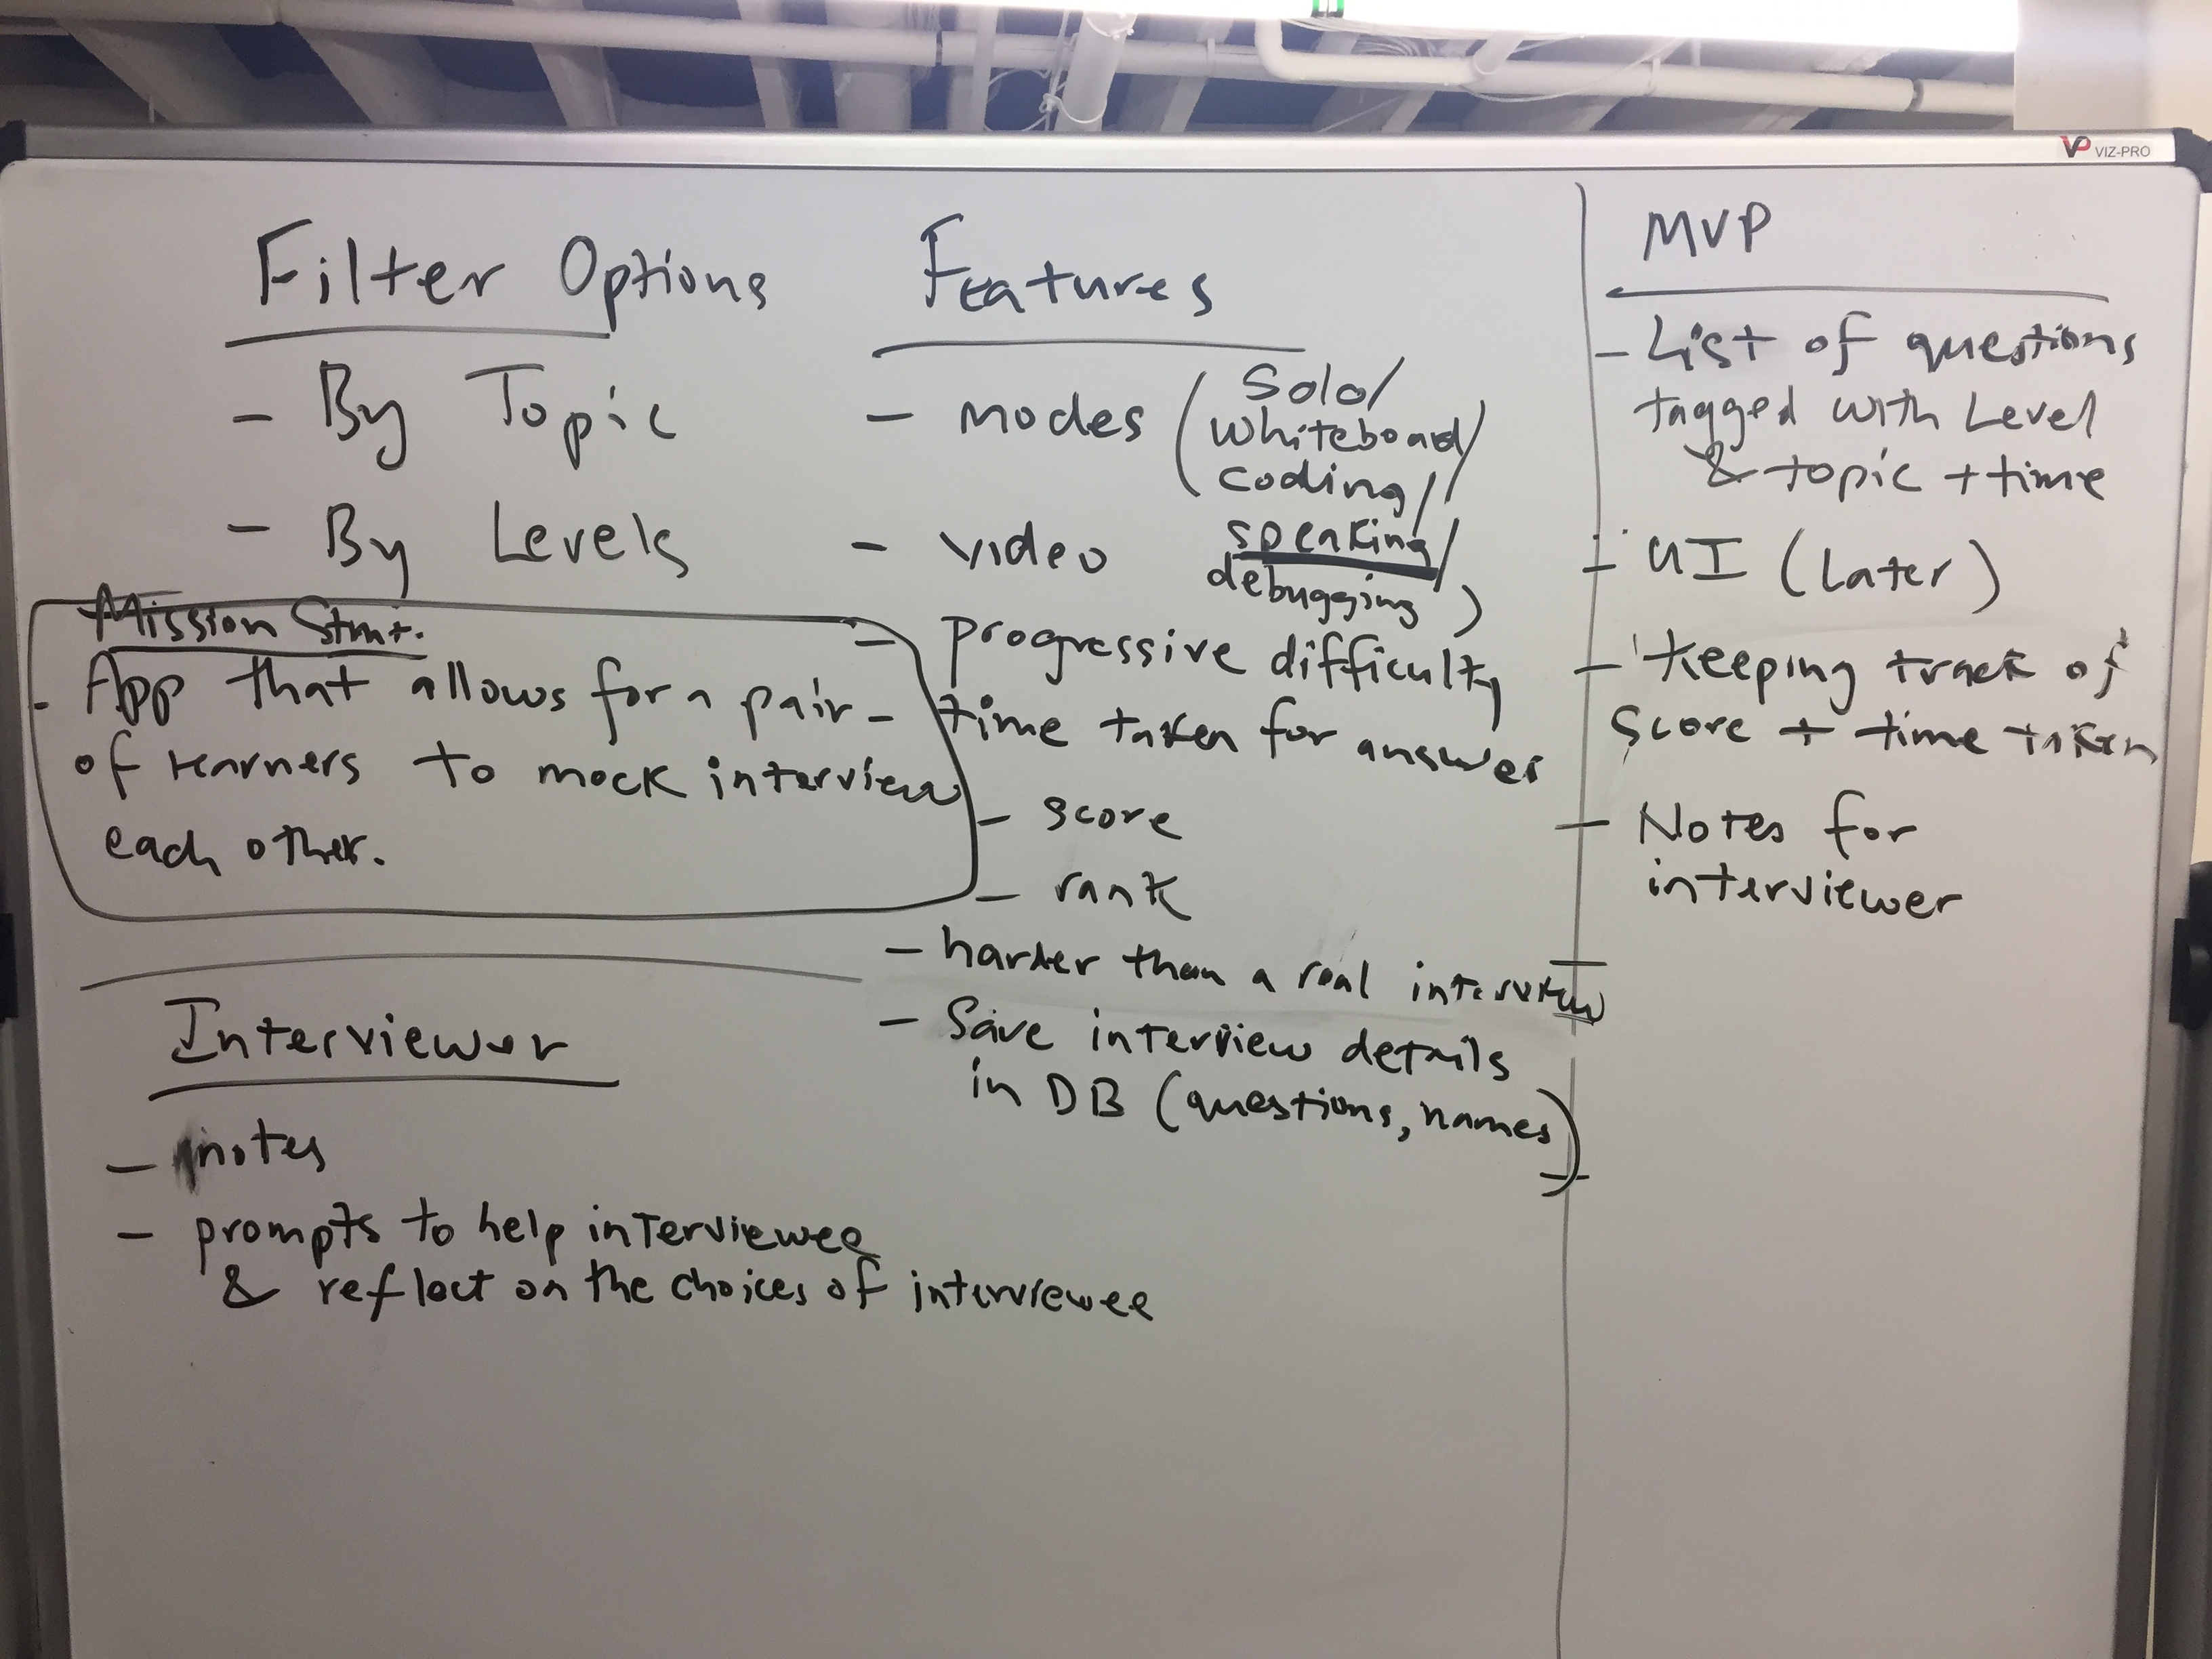 VP VIZ-PRO
Filter Options
- By Topic
- By Levels
Mission Stmt.
- App that allows for a pair
of learners to mock interview
each other.
Interviewer
- notes
- prompts to help interviewee
& reflect on the choices of interviewee
Features
- modes (Solo/
whiteboard/
coding//
speaking/
debugging)
- video
- progressive difficulty
- time taken for answer
- score
- rank
- harder than a real interview
- Save interview details
in DB (questions, names)
MVP
- List of questions
tagged with Level
& topic + time
- UI (Later)
- Keeping track of
score + time taken
- Notes for
interviewer